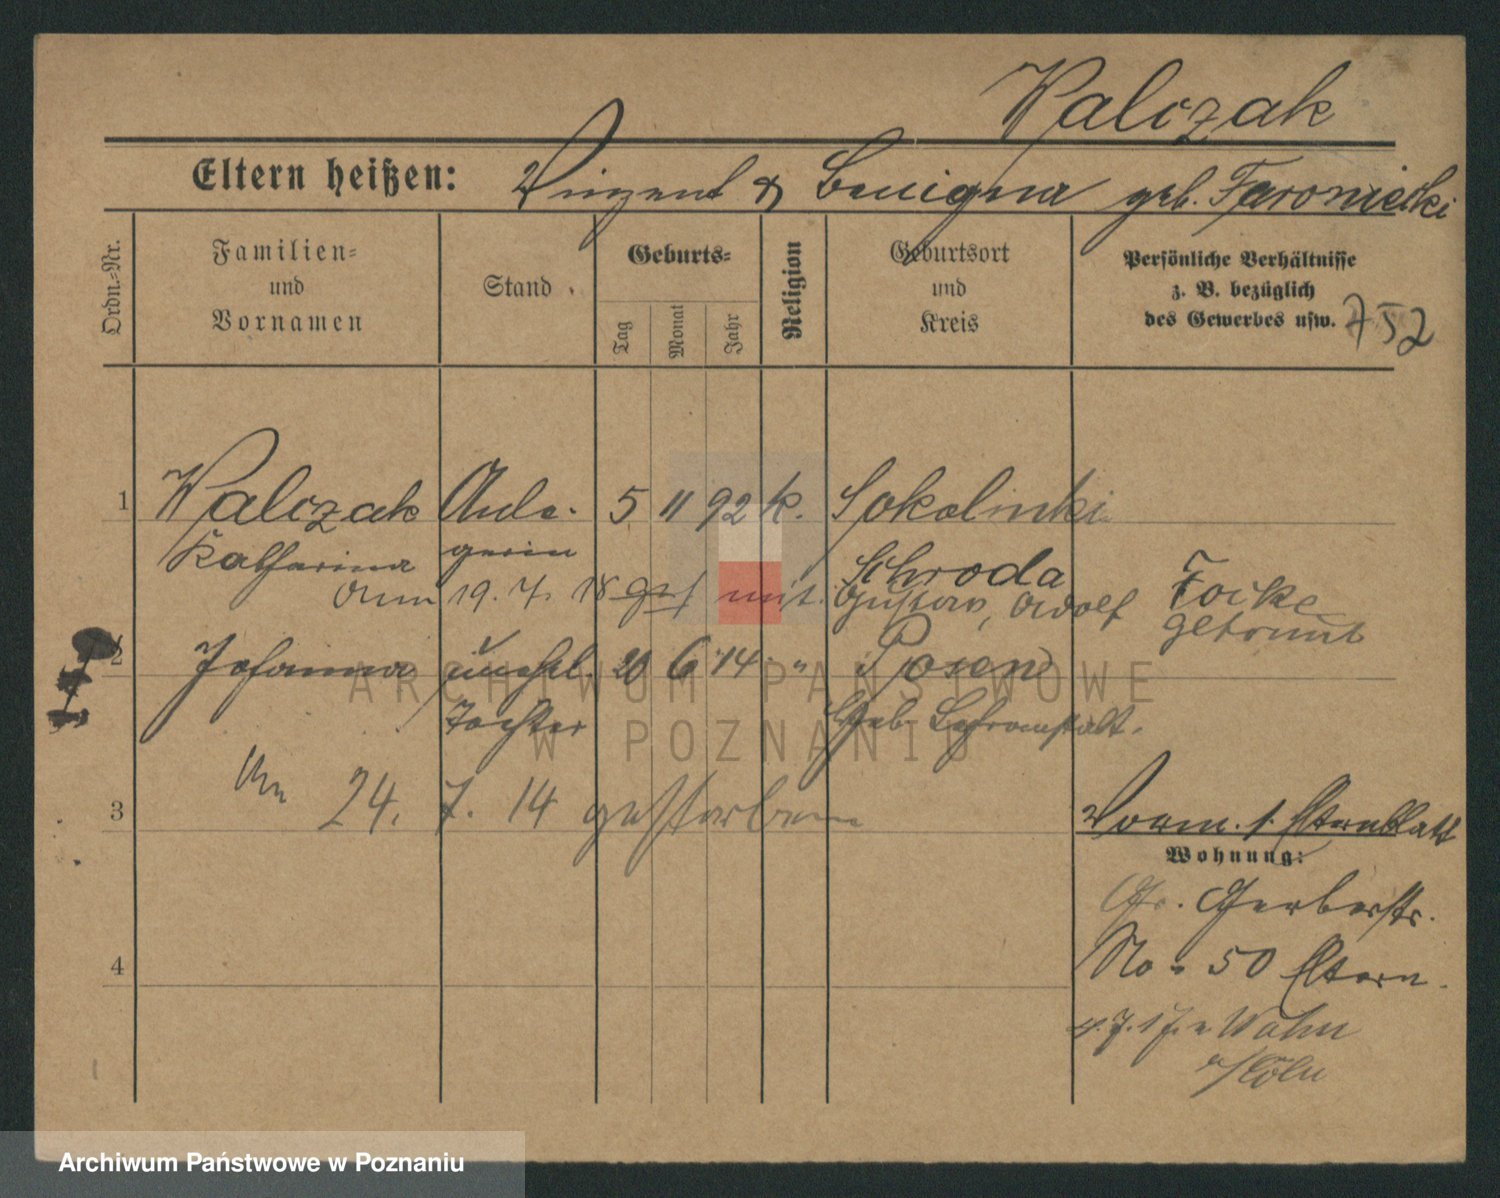 Walczak
Eltern heißen: Vinzent & Benigna geb. Faroniecki
Ordn.=Nr.
Familien=
und
Vornamen
Stand
Geburts=
Tag
Monat
Jahr
Religion
Geburtsort
und
Kreis
Persönliche Verhältnisse
z. B. bezüglich
des Gewerbes usw.
752
1 Walczak Aule- 5 11 92 k. Sokolniki
Katharina gerin Schroda
Am 19. 7. 18 mit Gustav, Adolf Focke
getraut
2 Johanna unehl. 20 6 14 " Posen
Tochter Geb.
Am 24. 7. 14 gestorben
3
Vorm. s. Elternblatt
Wohnung:
Gr. Gerberstr.
No. 50 Eltern.
4
Wahn
a/Cöln
ARCHIWUM PAŃSTWOWE
W POZNANIU
Archiwum Państwowe w Poznaniu